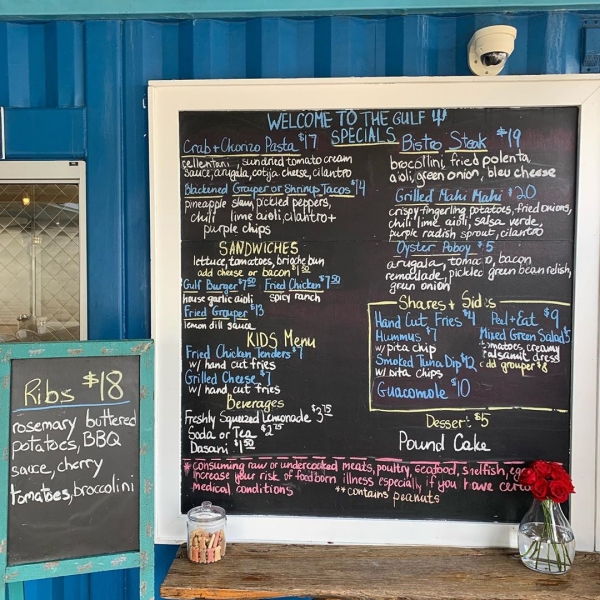 WELCOME TO THE GULF
SPECIALS
Crab + Chorizo Pasta $17
cellentani, sundried tomato cream
sauce, arugala, cotija cheese, cilantro
Blackened Grouper or Shrimp Tacos $14
pineapple slaw, pickled peppers,
chili lime aioli, cilantro +
purple chips
SANDWICHES
lettuce, tomatoes, brioche bun
add cheese or bacon $1.50
Gulf Burger $7.50 Fried Chicken $7.50
house garlic aioli spicy ranch
Fried Grouper $13
lemon dill sauce
KIDS Menu
Fried Chicken Tenders $7
w/ hand cut fries
Grilled Cheese $7
w/ hand cut fries
Beverages
Freshly Squeezed Lemonade $3.75
Soda or Tea $2.75
Dasani $1.50
Bistro Steak $19
brocollini, fried polenta,
aioli, green onion, bleu cheese
Grilled Mahi Mahi $20
crispy fingerling potatoes, fried onions,
chili lime aioli, salsa verde,
purple radish sprout, cilantro
Oyster Poboy $15
arugala, tomato, bacon
remoulade, pickled green bean relish,
green onion
Shares + Sides
Hand Cut Fries $4 Peel + Eat $9
Hummus $7
w/ pita chip
Smoked Tuna Dip $12
w/ pita chips
Guacamole $10
Mixed Green Salad $5
tomatoes, creamy
balsamic dress
add grouper $8
Dessert $5
Pound Cake
* consuming raw or undercooked meats, poultry, seafood, shellfish,
increase your risk of foodborn illness especially if you have
medical conditions **contains peanuts
Ribs $18
rosemary buttered
potatoes, BBQ
sauce, cherry
tomatoes, broccolini